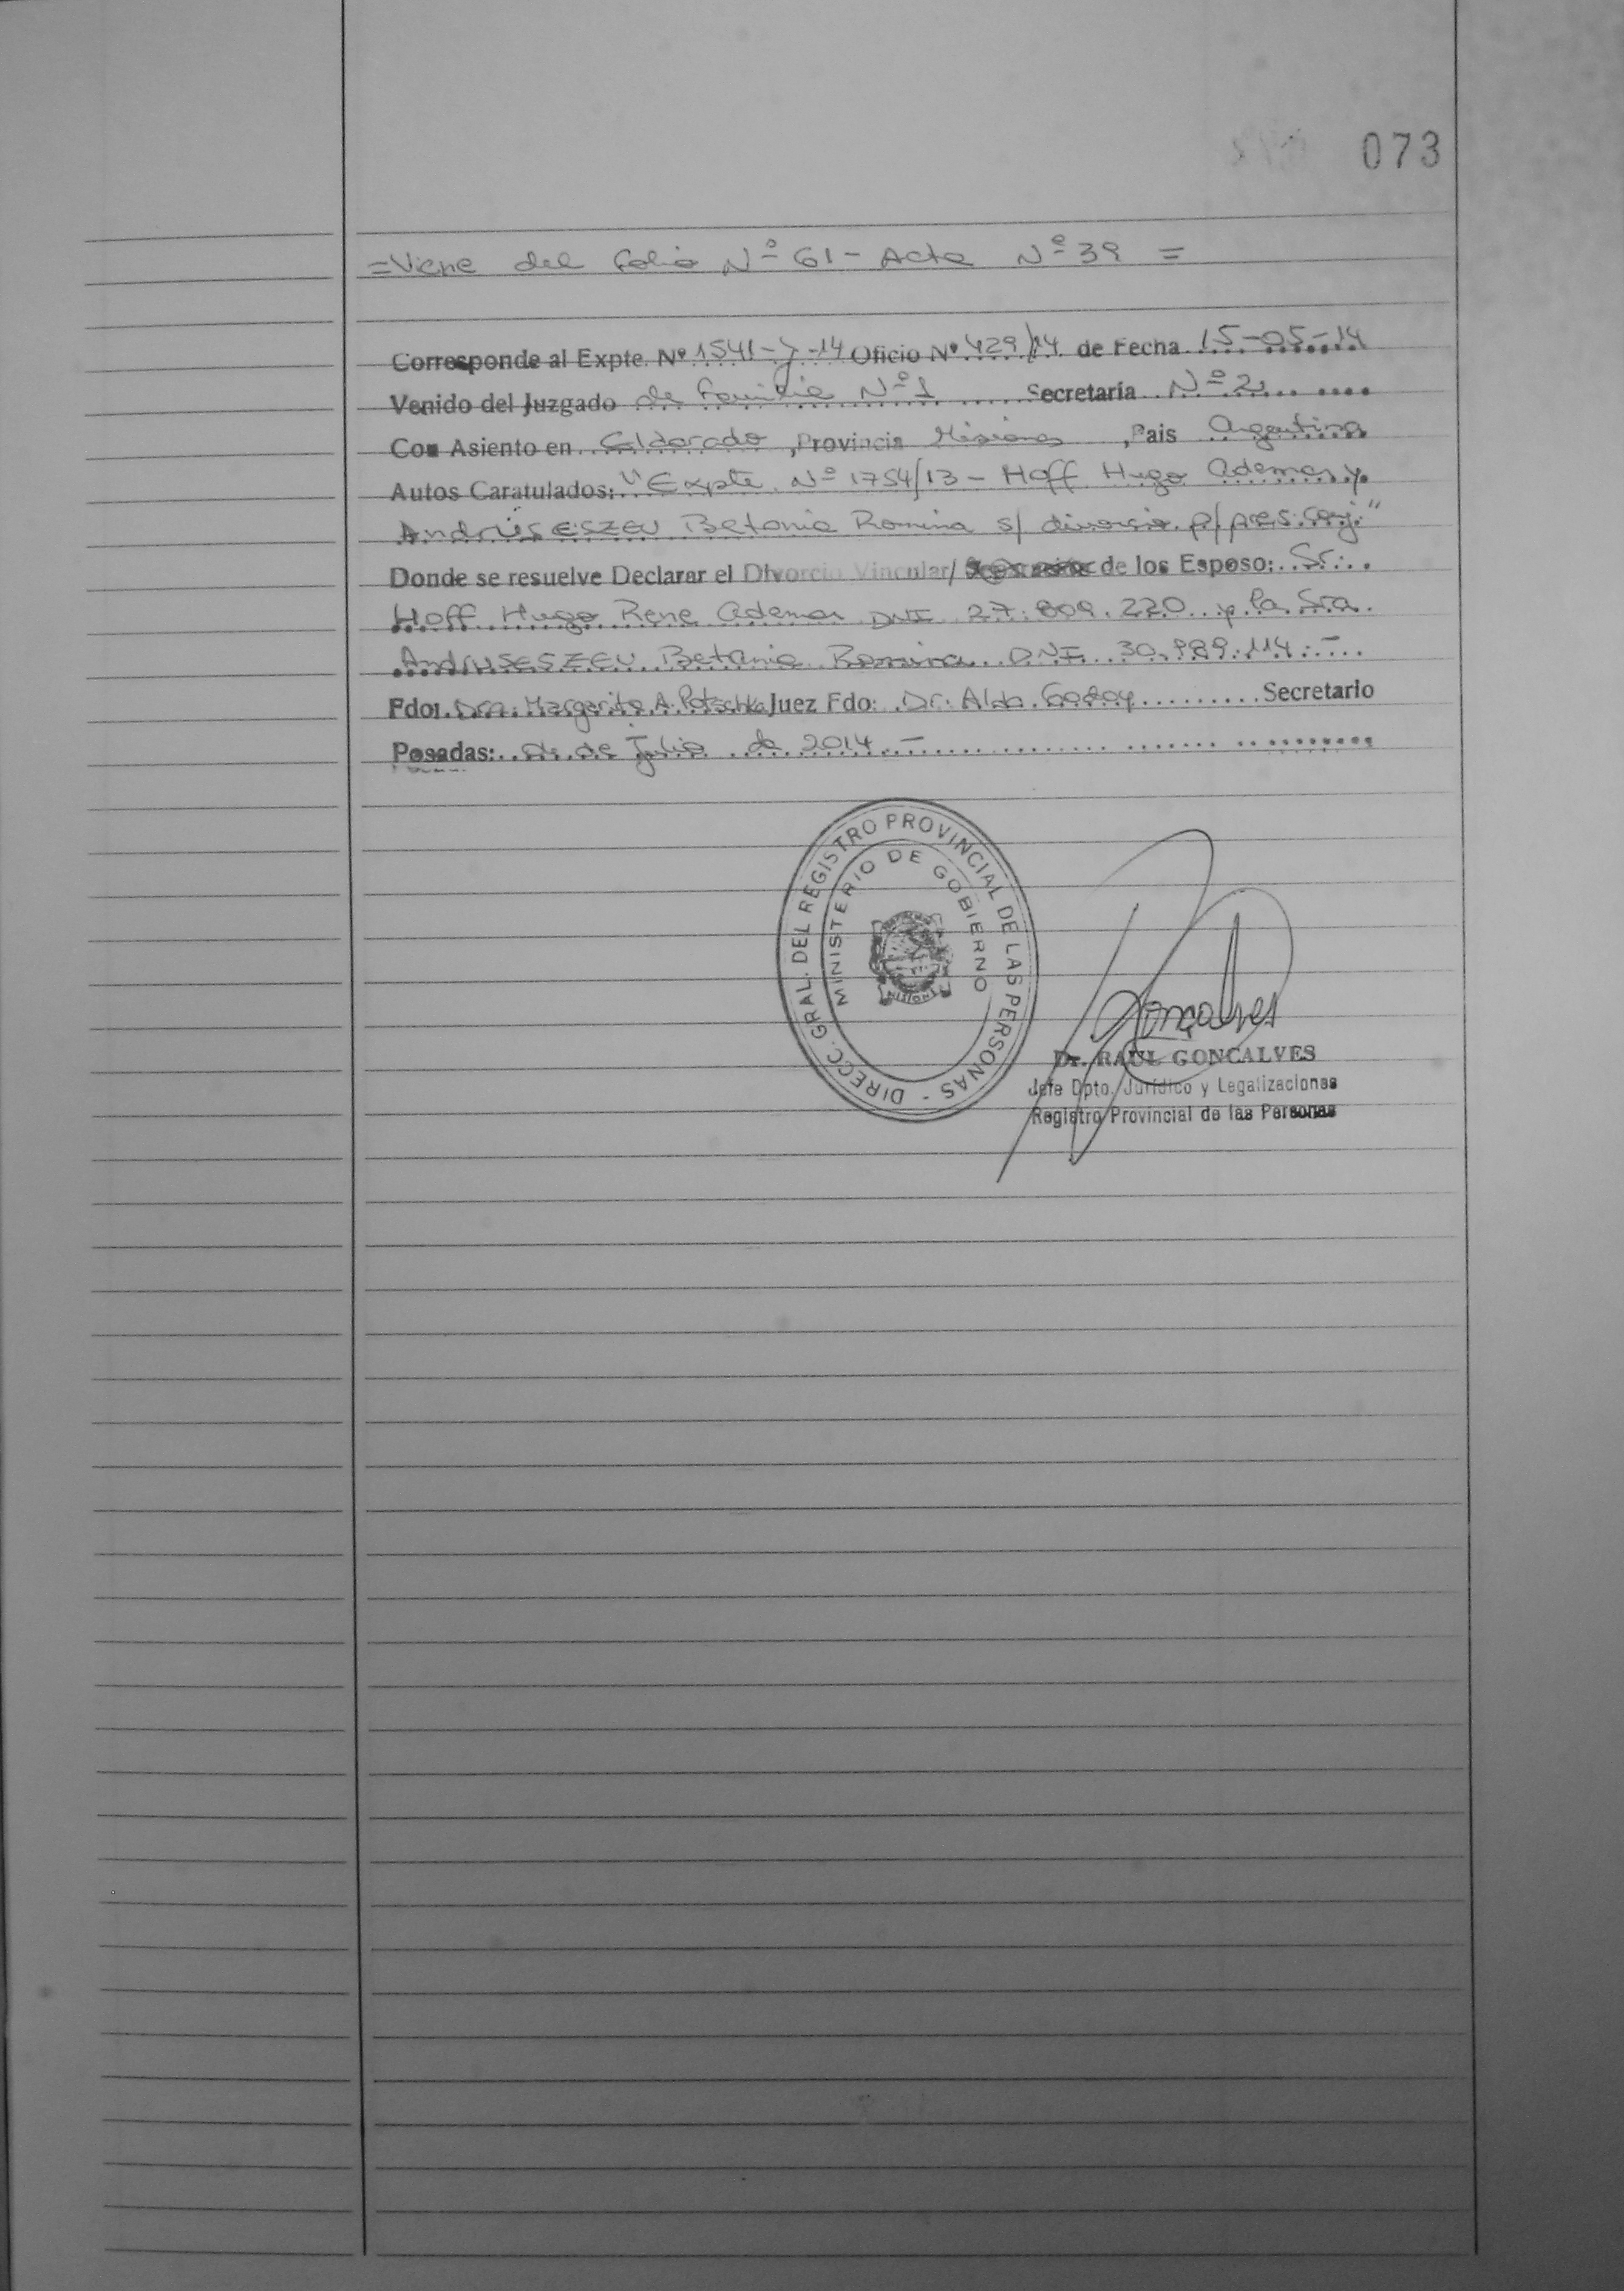 073
= Viene del folio Nº 61 - Acta Nº 39 =
Corresponde al Expte. Nº 1541-y-14 Oficio Nº 429/14 de Fecha 15-05-14
Venido del Juzgado de Familia Nº 1 Secretaría Nº 2
Con Asiento en Eldorado, Provincia Misiones, Pais Argentina
Autos Caratulados: "Expte. Nº 1754/13 - Hoff Hugo Ademar y
Andruseszeu Betania Romina s/ divorcio p/ pres. conj."
Donde se resuelve Declarar el Divorcio Vincular/ de los Esposo: Sr.
Hoff Hugo Rene Ademar DNI 27.809.220 y la Sra.
Andruseszeu Betania Romina DNI 30.989.114.-
Fdo: Dra. Margarita A. Potschka Juez Fdo: Dr. Aldo Godoy Secretario
Posadas: de Julio de 2014.-
DIRECC. GRAL. DEL REGISTRO PROVINCIAL DE LAS PERSONAS -
MINISTERIO DE GOBIERNO
MISIONES
Goncalves
Dr. RAUL GONCALVES
Jefe Dpto. Jurídico y Legalizaciones
Registro Provincial de las Personas